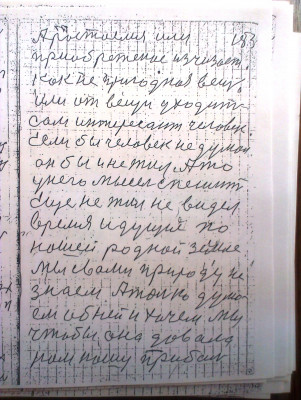 А простоемся или 183
приобретение изчизает
как не пригодная вещ.
или от вещи уходит
сам интересант человек.
Если бы человек не думал
он бы и не жил А то
у него мысел спешит
еще не жил не видел
время идущие по
нашей родной земле
мы с вами природу не
знаем А толко дума
ем об ней и хочем мы
чтобы она довала
нам нашу прибал